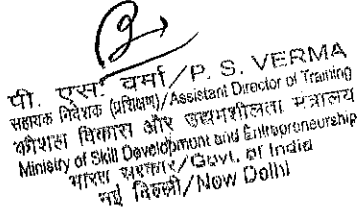 पी. एस. वर्मा/P. S. VERMA
सहायक निदेशक (प्रशिक्षण)/Assistant Director of Training
कौशल विकास और उद्यमशीलता मंत्रालय
Ministry of Skill Development and Entrepreneurship
भारत सरकार/Govt. of India
नई दिल्ली/New Delhi